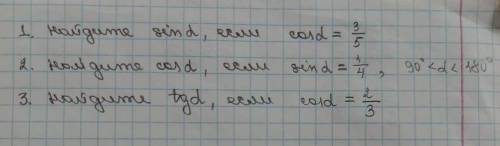 1. Найдите sin d, если cos d = 3/5
2. Найдите cos d, если sin d = 1/4, 90° < d < 180°
3. Найдите tg d, если cos d = 2/3